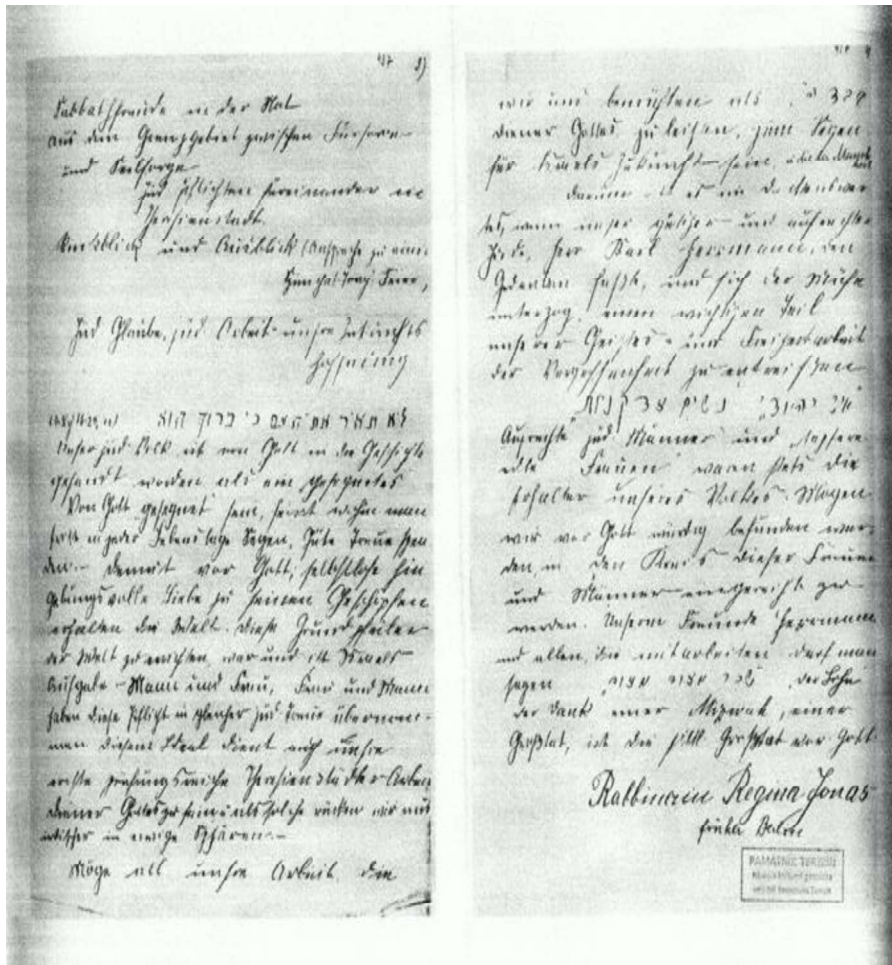 417 8)
Sabbathfreude in der Not
aus dem Grenzgebiet zwischen Fürsorge
und Seelsorge
Jüd Pflichten füreinander in
Theresienstadt
Rückblick und Ausblick (Ansprache zu einer
Feier,
Jüd Glaube, jüd Arbeit unsre Zukunfts
hoffnung
לא תאר את העם כי ברוך הוא
Unser jüd Volk ist von Gott in die Geschichte
gesandt worden als ein gesegnetes
Von Gott gesegnet sein, heisst wohin man
tritt in jeder Lebenslage Segen, Güte Treue spen
den - Demut vor Gott, selbstlose hin
gebungsvolle Liebe zu seinen Geschöpfen
erhalten die Welt. Diese Grundpfeiler
der Welt zu errichten, war und ist Israels
Aufgabe - Mann und Frau, Frau und Mann
haben diese Pflicht in gleicher jüd Treue übernom-
men diesem Ideal dient auch unsre
ernste prüfungsreiche Theresienstädter Arbeit
Diener Gottes zu sein u als solche rücken wir aus
irdischer in ewige Sphären -
Möge all unsre Arbeit, die
wir uns bemühten als
Diener Gottes zu leisten, zum Segen
für Israels Zukunft sein,
Darum ist es
wenn unser gütiger und aufrechter
Jude, Herr Karl Herrmann, den
Gedanken faßte, und sich der Mühe
unterzog, einen wichtigen Teil
unserer Geistes- und Freizeitarbeit
der Vergessenheit zu entreißen
Aufrechte "jüd. Männer" und "tapfere
edle Frauen" waren stets die
Erhalter unseres Volkes. Mögen
wir vor Gott würdig befunden wer-
den, in den Kreis dieser Frauen
und Männer eingereiht zu
werden. Unserm Freunde Herrmann
und allen, die mitarbeiten darf man
sagen "שכר מצוה מצוה" Der Lohn
der Dank einer Mizwah, einer
Großtat, ist die Großtat vor Gott
Rabbinerin Regina Jonas
früher Berlin
PAMÁTNÍK TEREZÍN